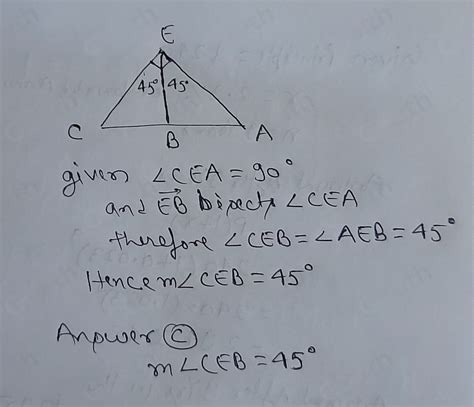 E
45° 45°
C B A
given ∠CEA = 90°
and EB bisects ∠CEA
therefore ∠CEB = ∠AEB = 45°
Hence m∠CEB = 45°
Answer Ⓒ
m∠CEB = 45°